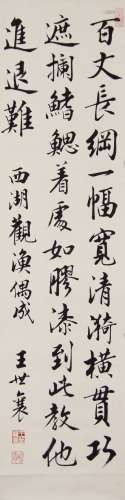 百丈長網一幅寬清漪橫貫巧
遮攔鰭鰓着處如膠漆到此教他
進退難 西湖觀漁偶成 王世襄